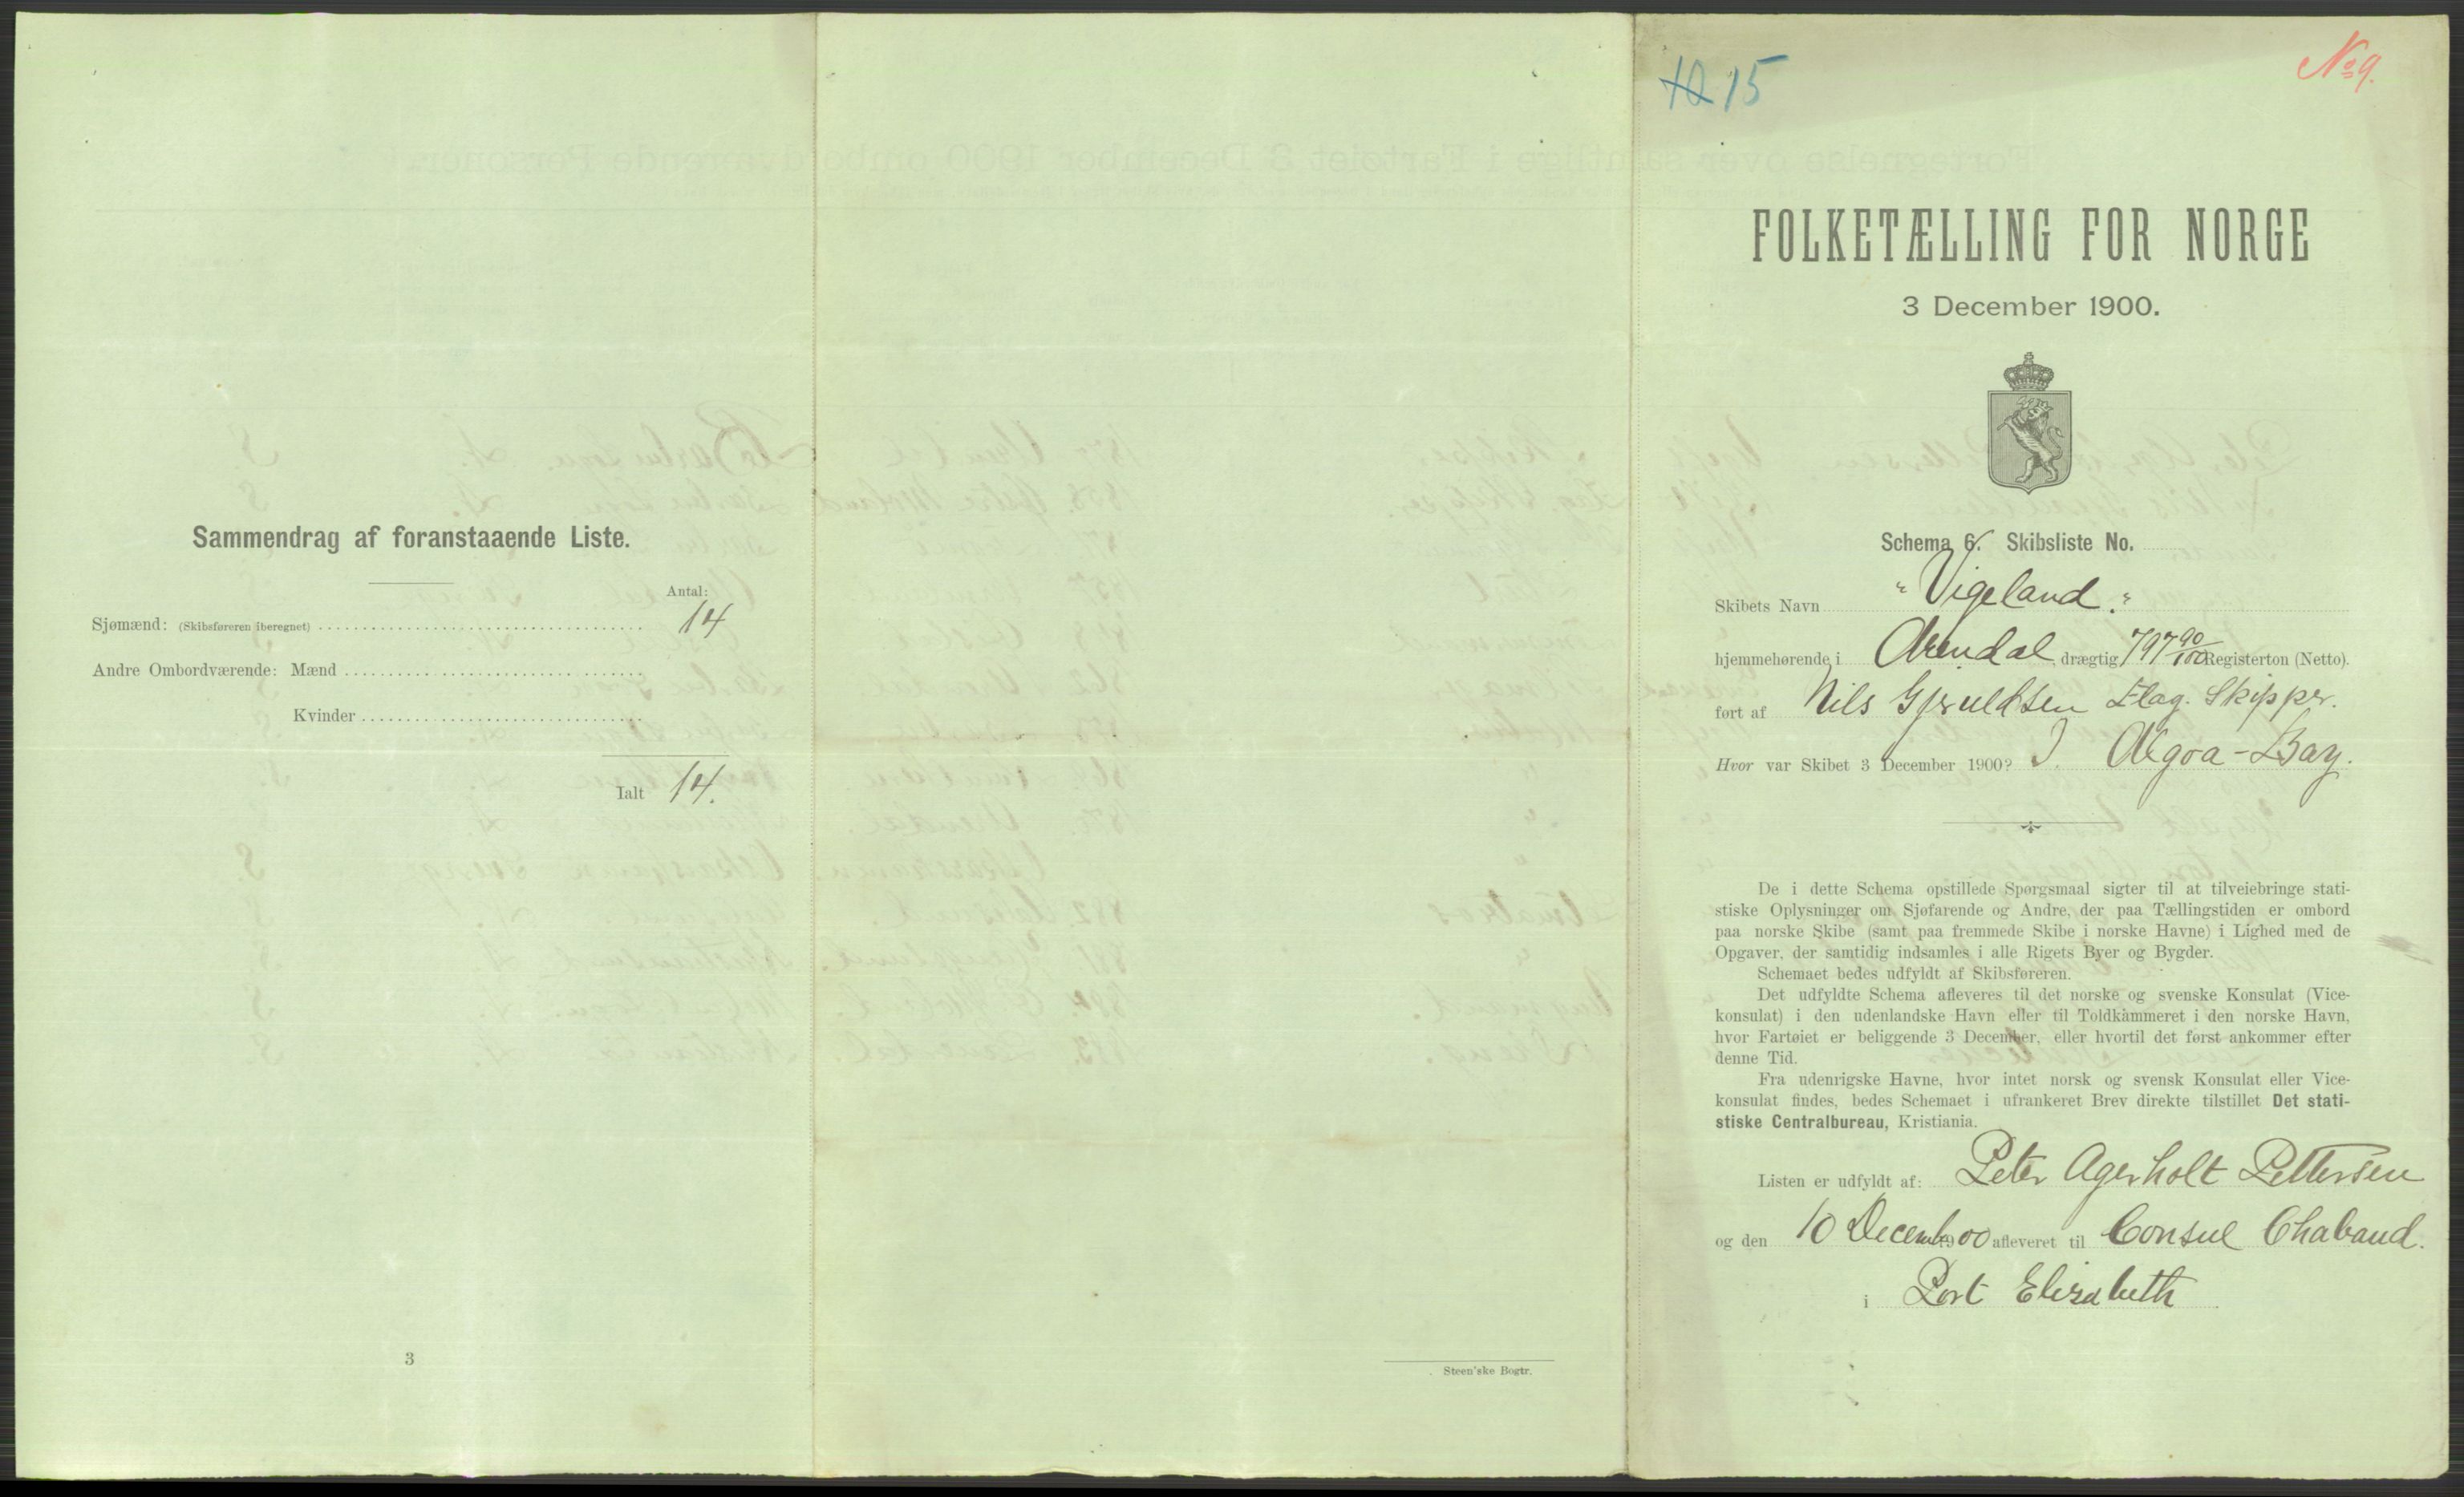 Sammendrag af foranstaaende Liste.
Antal:
Sjømænd: (Skibsføreren iberegnet) 14
Andre Ombordværende: Mænd
Kvinder
Ialt 14.
3
Steen'ske Bogtr.
10 15
No 9.
FOLKETÆLLING FOR NORGE
3 December 1900.
Schema 6. Skibsliste No.
Skibets Navn "Vigeland."
hjemmehørende i Arendal drægtig 797 90/100 Registerton (Netto).
ført af Nils Gjeruldsen Flag. Skipper.
Hvor var Skibet 3 December 1900? I Algoa-Bay.
De i dette Schema opstillede Spørgsmaal sigter til at tilveiebringe stati-
stiske Oplysninger om Sjøfarende og Andre, der paa Tællingstiden er ombord
paa norske Skibe (samt paa fremmede Skibe i norske Havne) i Lighed med de
Opgaver, der samtidig indsamles i alle Rigets Byer og Bygder.
Schemaet bedes udfyldt af Skibsføreren.
Det udfyldte Schema afleveres til det norske og svenske Konsulat (Vice-
konsulat) i den udenlandske Havn eller til Toldkammeret i den norske Havn,
hvor Fartøiet er beliggende 3 December, eller hvortil det først ankommer efter
denne Tid.
Fra udenrigske Havne, hvor intet norsk og svensk Konsulat eller Vice-
konsulat findes, bedes Schemaet i ufrankeret Brev direkte tilstillet Det stati-
stiske Centralbureau, Kristiania.
Listen er udfyldt af: Peter Agerholt Pettersen
og den 10 Decemb 1900 afleveret til Consul Chabaud.
i Port Elizabeth